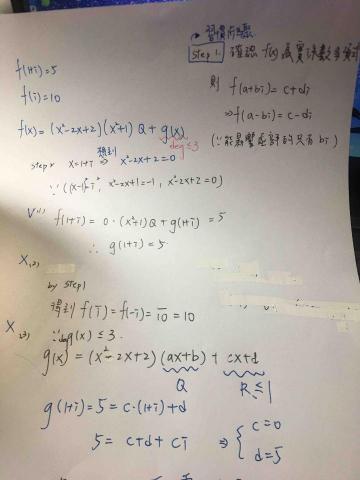 → 習慣步驟
Step 1. 確認 f(x) 為實係數多項式
f(1+i)=5
則 f(a+bi)=c+di
f(i)=10
⇒f(a-bi)=c-di
f(x)=(x²-2x+2)(x²+1)Q+g(x)
deg≤3
想到
step2 x=1+i ⇒ x²-2x+2=0
∵ ((x-1)²=i², x²-2x+1=-1, x²-2x+2=0)
V(1) f(1+i)=0·(x²+1)Q+g(1+i)=5
∴ g(1+i)=5
X(2)
by step1
得到 f(i)=f(-i)=10=10
X(3) ∵deg g(x)≤3.
g(x)=(x²-2x+2)(ax+b)+cx+d
Q R≤1
g(1+i)=5=c·(1+i)+d
5=c+d+ci ⇒ { c=0
d=5